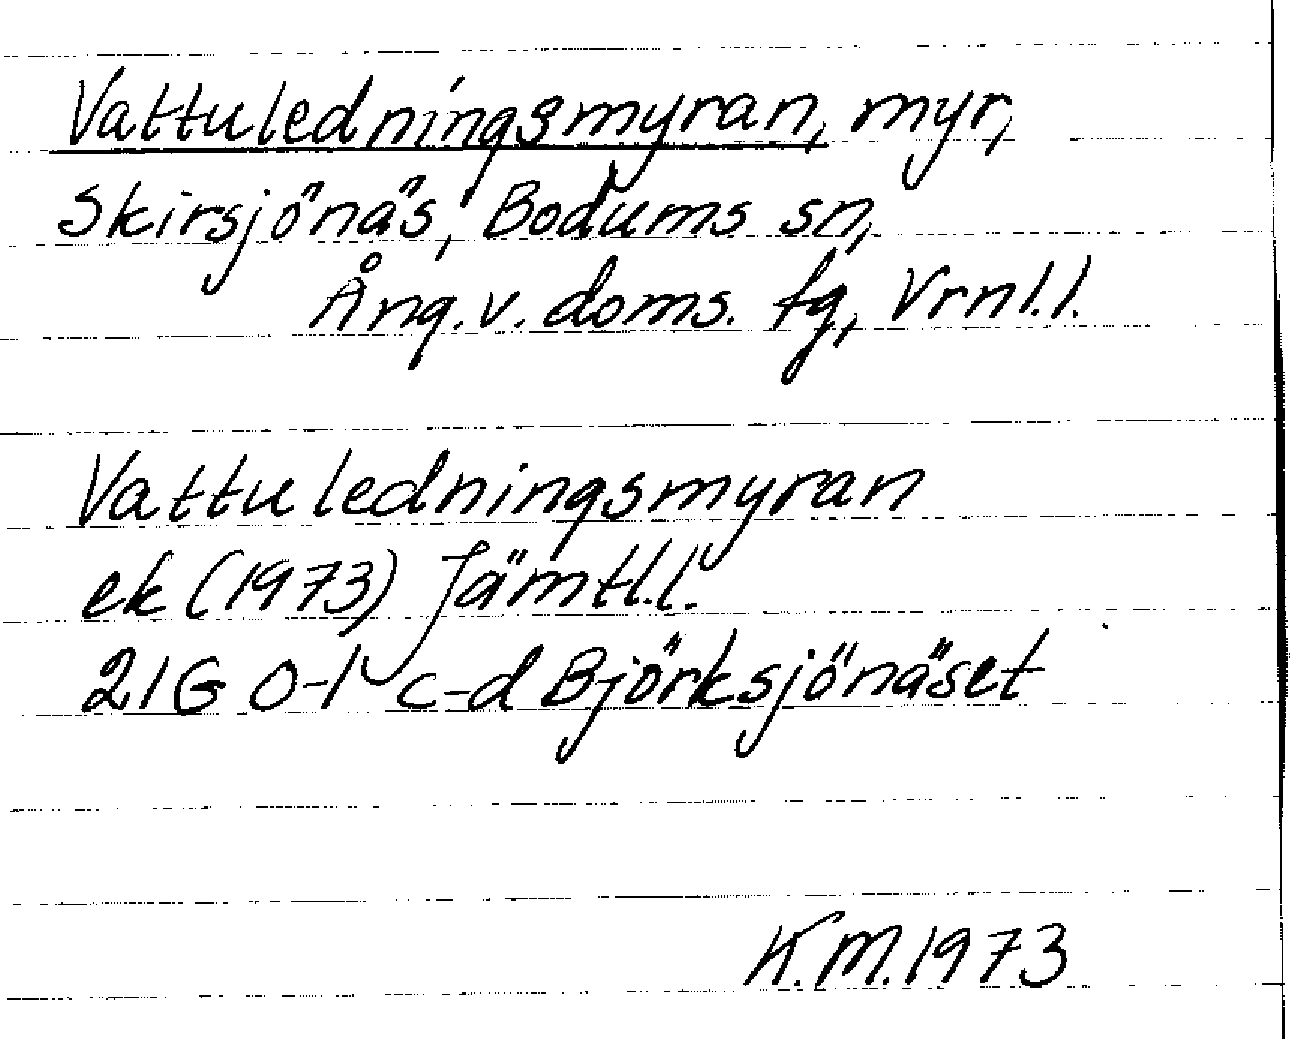 Vattuledningsmyran, myr,
Skirsjönäs, Bodums sn,
Ång.v. doms. tg, Vrnl.l.
Vattuledningsmyran
ek (1973) Jämtl.l.
21G 0-1 c-d Björksjönäset
K.M.1973